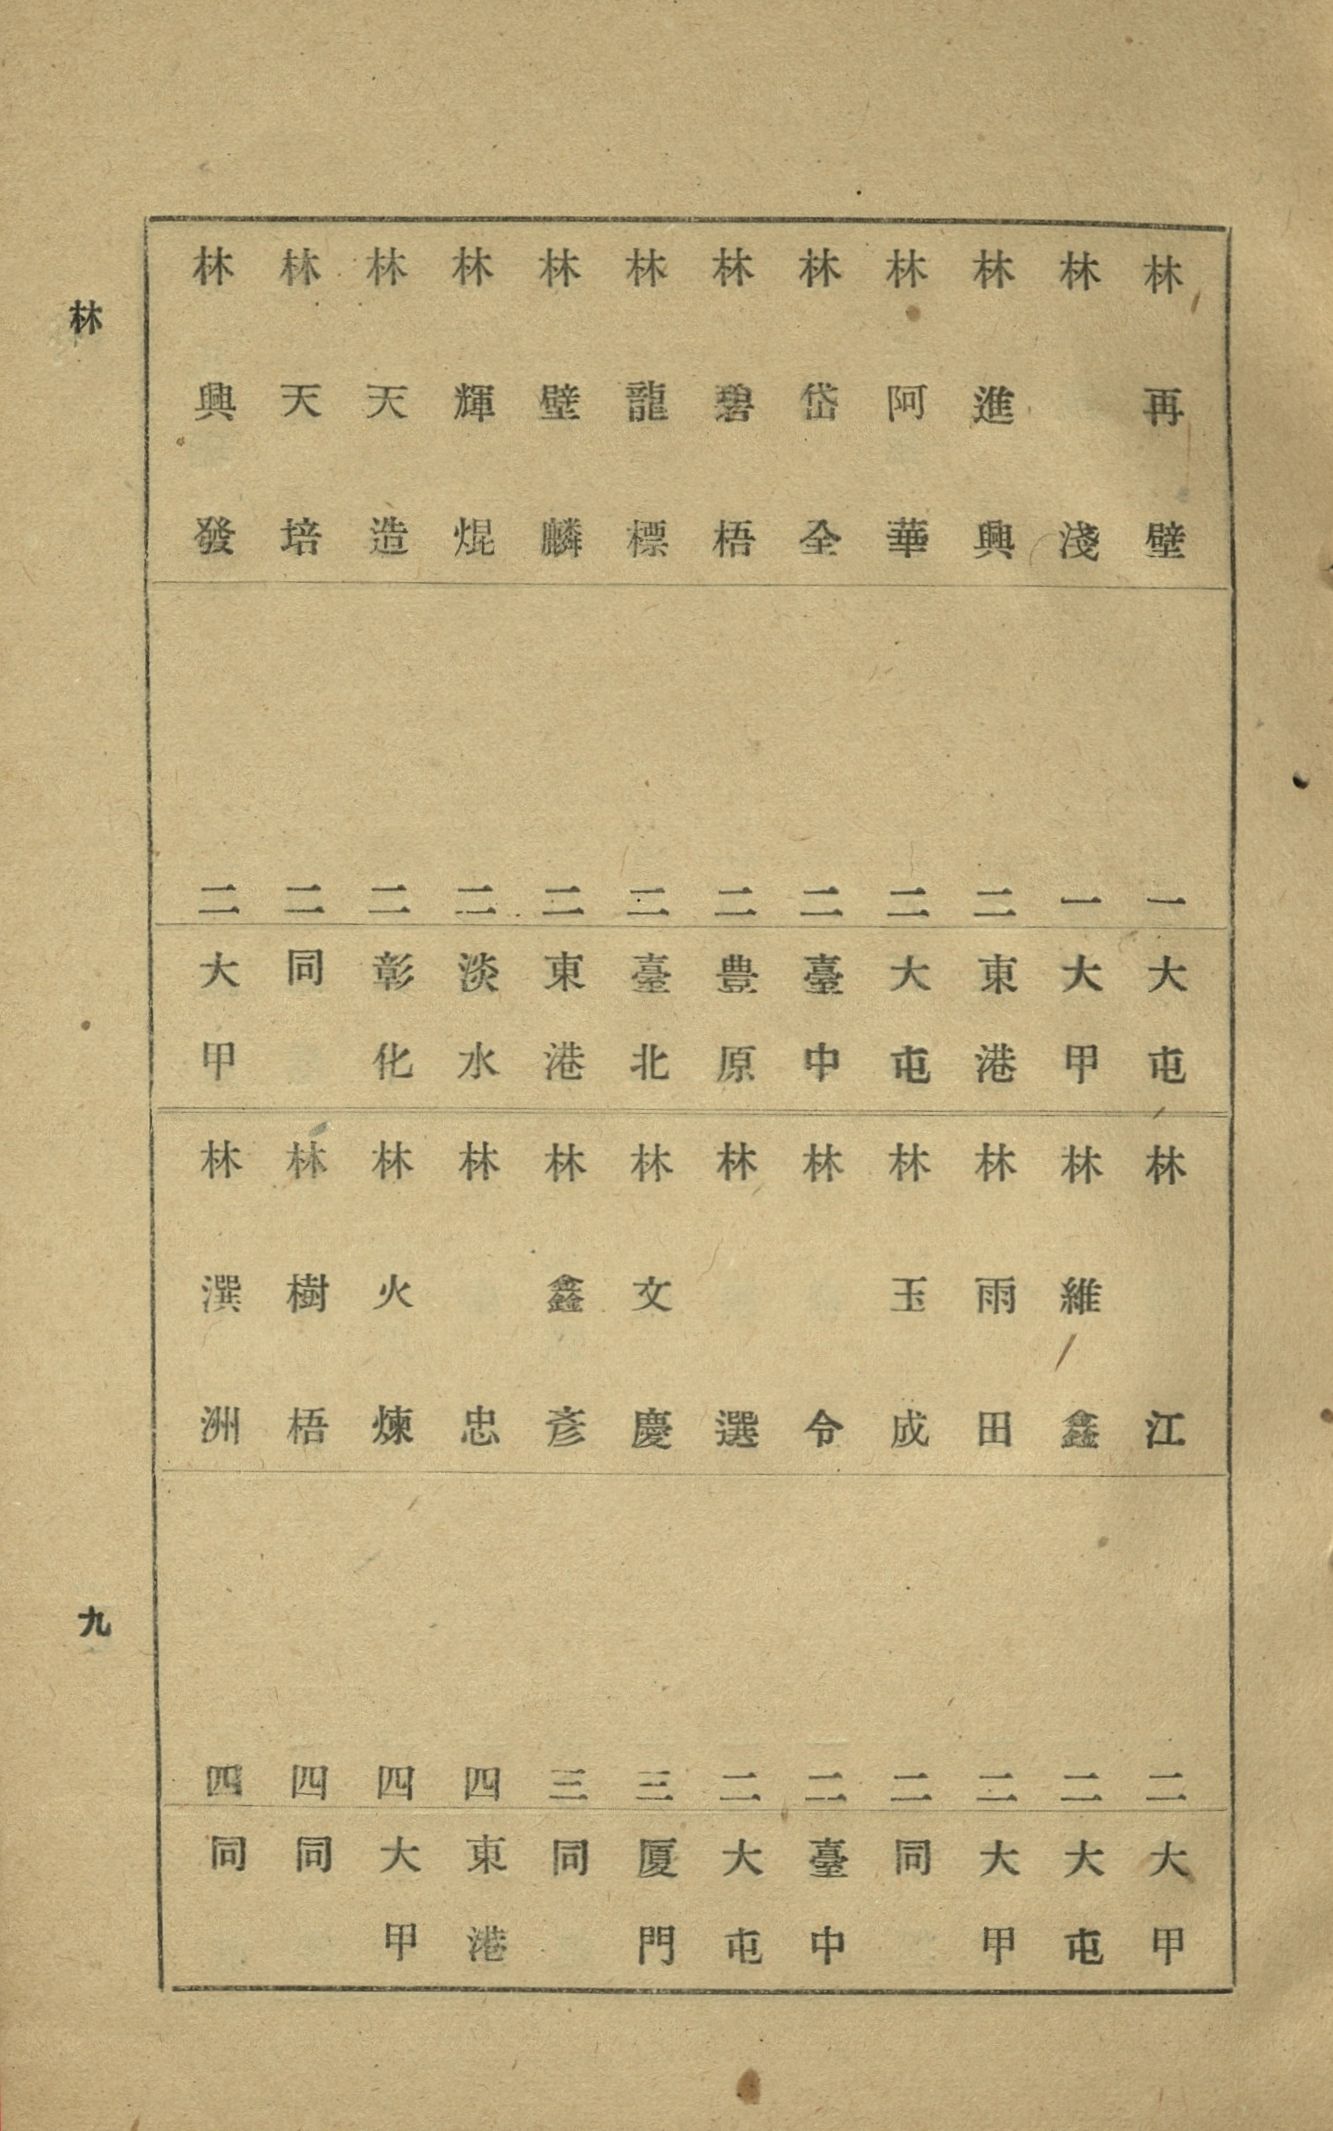 林再壁 一 大屯
林淺 一 大甲
林進興 二 東港
林阿華 二 大屯
林岱全 二 臺中
林碧梧 二 豊原
林龍標 二 臺北
林壁麟 二 東港
林輝焜 二 淡水
林天造 二 彰化
林天培 二 同
林興發 二 大甲
林江 二 大甲
林維鑫 二 大屯
林雨田 二 大甲
林玉成 二 同
林令 二 臺中
林選 二 大屯
林文慶 三 厦門
林鑫彦 三 同
林忠 四 東港
林火煉 四 大甲
林樹梧 四 同
林潠洲 四 同
林
九